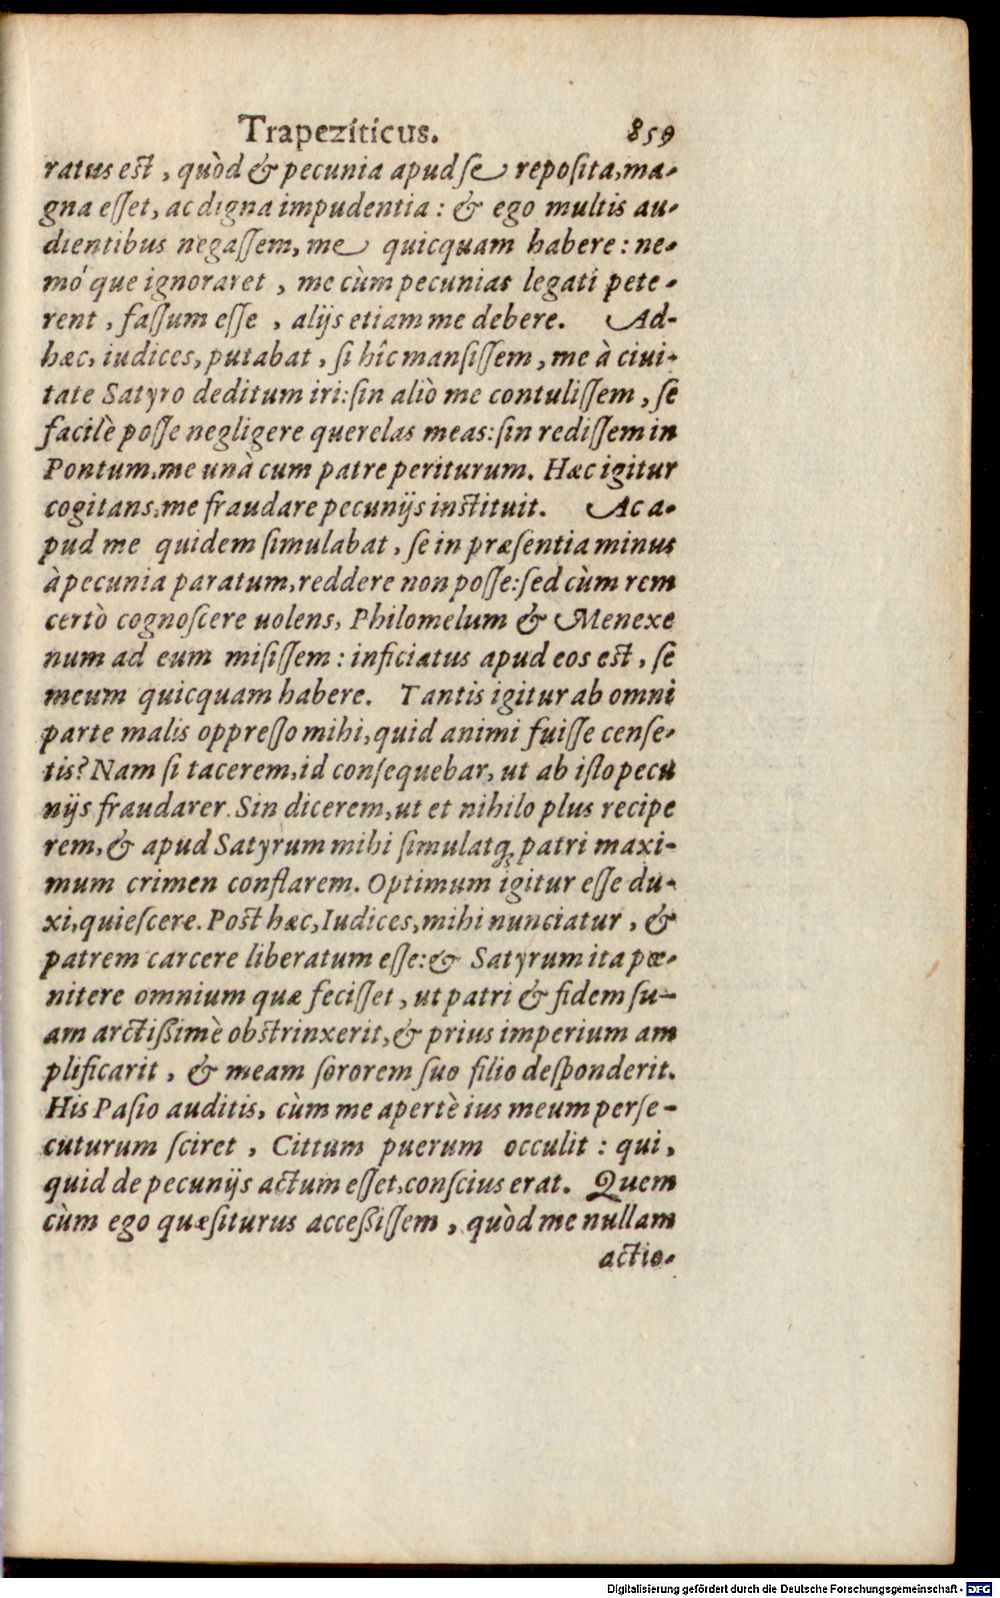 Trapezíticus. 859
ratus est, quòd & pecunia apud se reposita, ma-
gna esset, ac digna impudentia: & ego multis au-
dientibus negassem, me quicquam habere: ne-
mó que ignoraret, me cùm pecunias legati pete-
rent, fassum esse, alijs etiam me debere. Ad-
hæc, iudices, putabat, si hîc mansissem, me à ciui-
tate Satyro deditum iri: sin aliò me contulissem, se
facilè posse negligere querelas meas: sin redissem in
Pontum, me unà cum patre periturum. Hæc igitur
cogitans, me fraudare pecunijs instituit. Ac a-
pud me quidem simulabat, se in præsentia minus
à pecunia paratum, reddere non posse: sed cùm rem
certò cognoscere uolens, Philomelum & Menexe
num ad eum misissem: inficiatus apud eos est, se
meum quicquam habere. Tantis igitur ab omni
parte malis oppresso mihi, quid animi fuisse cense-
tis? Nam si tacerem, id consequebar, ut ab isto pecu
nijs fraudarer. Sin dicerem, ut et nihilo plus recipe
rem, & apud Satyrum mihi simulatq; patri maxi-
mum crimen conflarem. Optimum igitur esse du-
xi, quiescere. Post hæc, Iudices, mihi nunciatur, &
patrem carcere liberatum esse: & Satyrum ita pœ-
nitere omnium quæ fecisset, ut patri & fidem su-
am arctißimè obstrinxerit, & prius imperium am
plificarit, & meam sororem suo filio desponderit.
His Pasio auditis, cùm me apertè ius meum perse-
cuturum sciret, Cittum puerum occulit: qui,
quid de pecunijs actum esset, conscius erat. Quem
cùm ego quæsiturus acceßissem, quòd me nullam
actio-
Digitalisierung gefördert durch die Deutsche Forschungsgemeinschaft - DFG